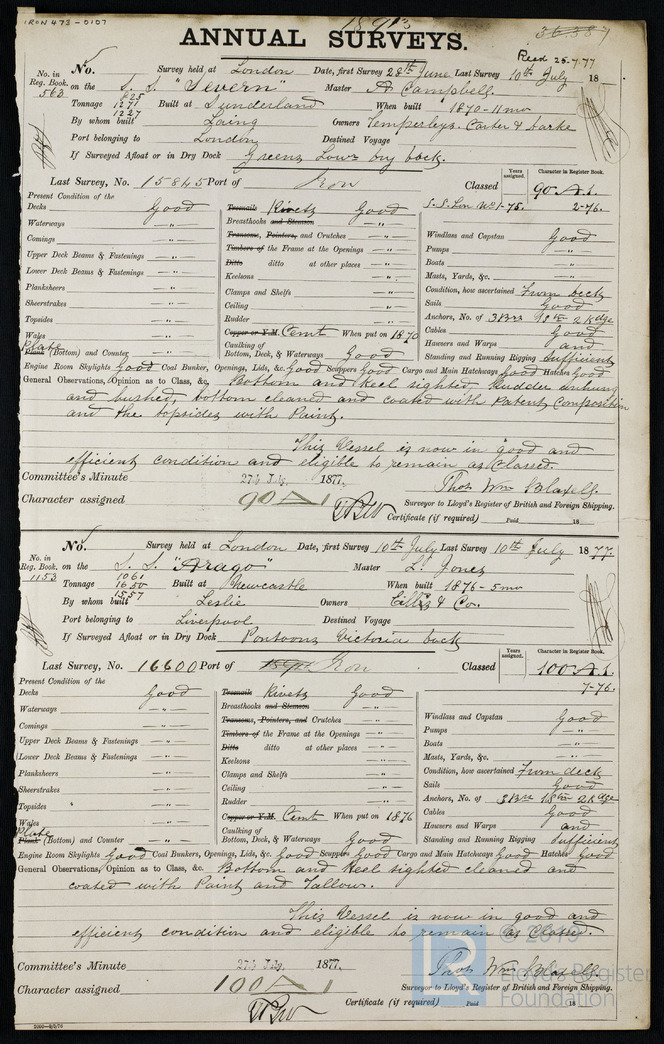 IRON 473-0107
36387
ANNUAL SURVEYS.
Read 25-7-77
No. in Reg. Book. 563
No. Survey held at London Date, first Survey 28th June Last Survey 10th July 18
on the S. S. "Severn" Master A Campbell.
Tonnage 1271 1227 Built at Sunderland When built 1870-11 mo
By whom built Laing Owners Temperleys. Carter & Darke
Port belonging to London Destined Voyage
If Surveyed Afloat or in Dry Dock Greens Lower Dry Dock.
Last Survey, No. 15845 Port of Iron Classed Years assigned. Character in Register Book. 90 A.1.
S.S. Lon No 1-75. 2-76.
Present Condition of the
Decks Good
Waterways — " —
Comings — " —
Upper Deck Beams & Fastenings — " —
Lower Deck Beams & Fastenings — " —
Planksheers — " —
Sheerstrakes — " —
Topsides — " —
Wales — " —
Plate
Plank (Bottom) and Counter — " —
Treenails Rivets Good
Breasthooks and Stemson — " —
Transoms, Pointers, and Crutches — " —
Timbers of the Frame at the Openings — " —
Ditto ditto at other places — " —
Keelsons — " —
Clamps and Shelfs — " —
Ceiling — " —
Rudder — " —
Copper or Y.M. Cemt When put on 1870
Caulking of
Bottom, Deck, & Waterways Good
Windlass and Capstan Good
Pumps — " —
Boats — " —
Masts, Yards, &c. — " —
Condition, how ascertained From deck
Sails Good
Anchors, No. of 3 Brs 1 Stm 2 Kdge
Cables Good
Hawsers and Warps and
Standing and Running Rigging Sufficient
Engine Room Skylights Good Coal Bunker, Openings, Lids, &c. Good Scuppers Good Cargo and Main Hatchways Good Hatches Good
General Observations, Opinion as to Class, &c. Bottom and Keel sighted, Rudder unhung
and bushed, bottom cleaned and coated with Patent Composition
and the topsides with Paint.
This Vessel is now in good and
efficient condition and eligible to remain as Classed.
Committee's Minute 27th July. 1877. Thos Wm Blaxell.
Character assigned 90 A 1 Surveyor to Lloyd's Register of British and Foreign Shipping.
Certificate (if required) Paid 18
No. in Reg. Book. 1153
No. Survey held at London Date, first Survey 10th July Last Survey 10th July 1877.
on the S. S. "Arago" Master L. Jones
Tonnage 1061 1650 1557 Built at Newcastle When built 1876-5 mo
By whom built Leslie Owners & Co.
Port belonging to Liverpool Destined Voyage
If Surveyed Afloat or in Dry Dock Pontoons Victoria Dock
Last Survey, No. 16600 Port of Iron Classed Years assigned. Character in Register Book. 100 A.1.
7-76.
Present Condition of the
Decks Good
Waterways — " —
Comings — " —
Upper Deck Beams & Fastenings — " —
Lower Deck Beams & Fastenings — " —
Planksheers — " —
Sheerstrakes — " —
Topsides — " —
Wales — " —
Plate
Plank (Bottom) and Counter — " —
Treenails Rivets Good
Breasthooks and Stemson — " —
Transoms, Pointers, and Crutches — " —
Timbers of the Frame at the Openings — " —
Ditto ditto at other places — " —
Keelsons — " —
Clamps and Shelfs — " —
Ceiling — " —
Rudder — " —
Copper or Y.M. Cemt When put on 1876
Caulking of
Bottom, Deck, & Waterways Good
Windlass and Capstan Good
Pumps — " —
Boats — " —
Masts, Yards, &c. — " —
Condition, how ascertained From deck
Sails Good
Anchors, No. of 3 Brs 1 Stm 2 Kdge
Cables Good
Hawsers and Warps and
Standing and Running Rigging Sufficient
Engine Room Skylights Good Coal Bunkers, Openings, Lids, &c. Good Scuppers Good Cargo and Main Hatchways Good Hatches Good
General Observations, Opinion as to Class, &c. Bottom and Keel sighted cleaned and
coated with Paint and Tallow.
This Vessel is now in good and
efficient condition and eligible to remain as Classed.
© 2019
Lloyd's Register
Foundation
Committee's Minute 27th July. 1877. Thos Wm Blaxell.
Character assigned 100 A 1 Surveyor to Lloyd's Register of British and Foreign Shipping.
Certificate (if required) Paid 18